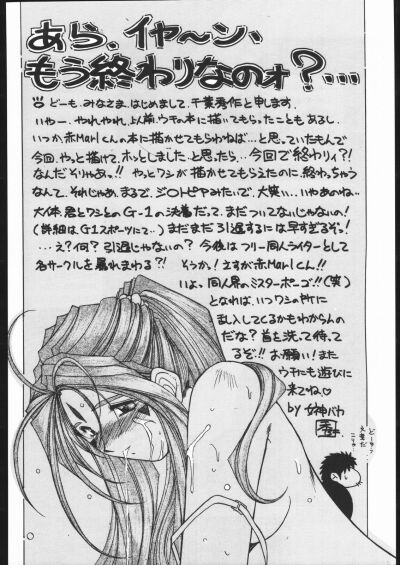 あら、イヤ～ン、
もう終わりなのォ?…
どーも、みなさま、はじめまして、千葉秀作と申します。
いやー、やれやれ、以前、ウチの本に描いてもらったこともあるし、
いつか、赤Marlくんの本に描かせてもらわねば…と思っていたもんで
今回、やっと描けて、ホッとしました…と思ったら、…今回で終わりィ?!
なんだそりゃあっ!! やっとワシが描かせてもらえたのに、終わっちゃう
なんて、それじゃあ、まるで、ジ○トピアみたいで、大笑い…いやあのね…
大体、君とワシとのG-1の決着だって、まだついてないじゃないの!
(詳細はG1スポーツにて…) まだまだ引退するには早すぎるぞ!
…え?何?引退じゃないの? 今後はフリー同人ライターとして
各サークルを暴れまわる?! そうか!さすが赤Marlくん!!
いよっ、同人界のミスターポーゴ!!(笑)
となれば、いつワシの所に
乱入してくるかもわからんの
だな? 首を洗って待て
るぞ!! お願い!また
ウチにも遊びに
来てね♡
by 女神バカ
秀作